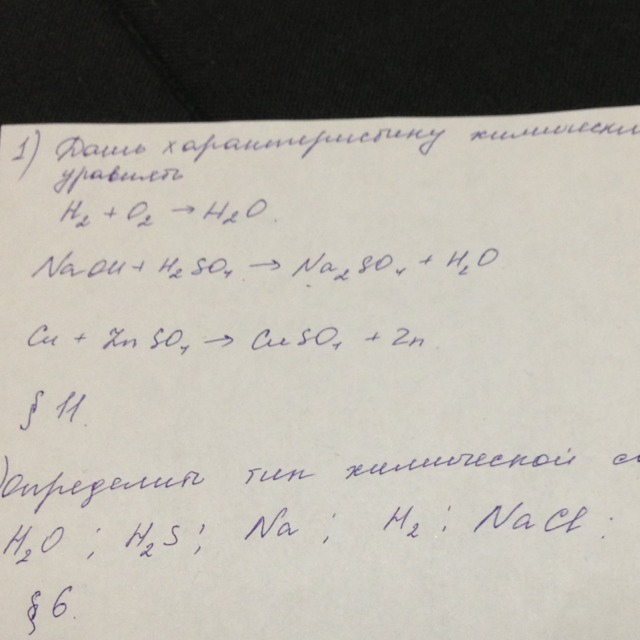 1) Дать характеристику химически
уравнять
H₂ + O₂ → H₂O.
NaOH + H₂SO₄ → Na₂SO₄ + H₂O
Cu + ZnSO₄ → CuSO₄ + Zn.
§ 11.
)Определить тип химической с
H₂O ; H₂S ; Na ; H₂ ; NaCl ;
§ 6.